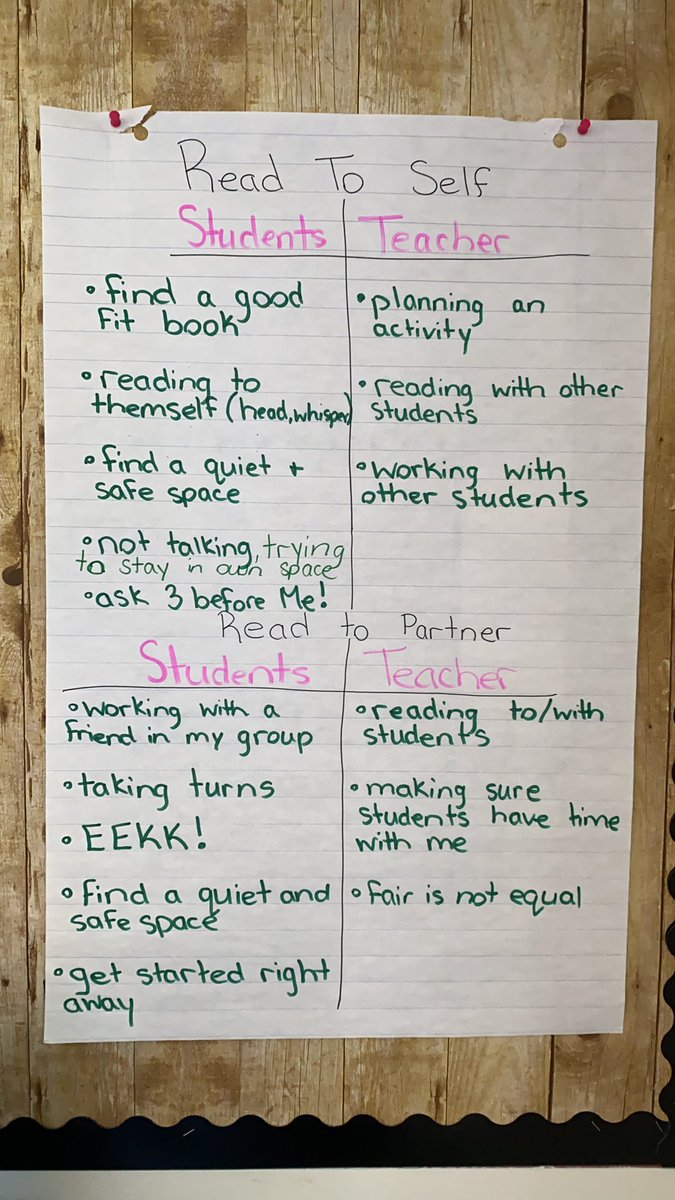 Read To Self
Students Teacher
•find a good
fit book
•reading to
themself (head, whisper)
•find a quiet +
safe space
•not talking, trying
to stay in own space
•ask 3 before Me!
•planning an
activity
•reading with other
students
•working with
other students
Read to Partner
Students Teacher
•working with a
friend in my group
•taking turns
•EEKK!
•find a quiet and
safe space
•get started right
away
•reading to/with
students
•making sure
students have time
with me
•fair is not equal